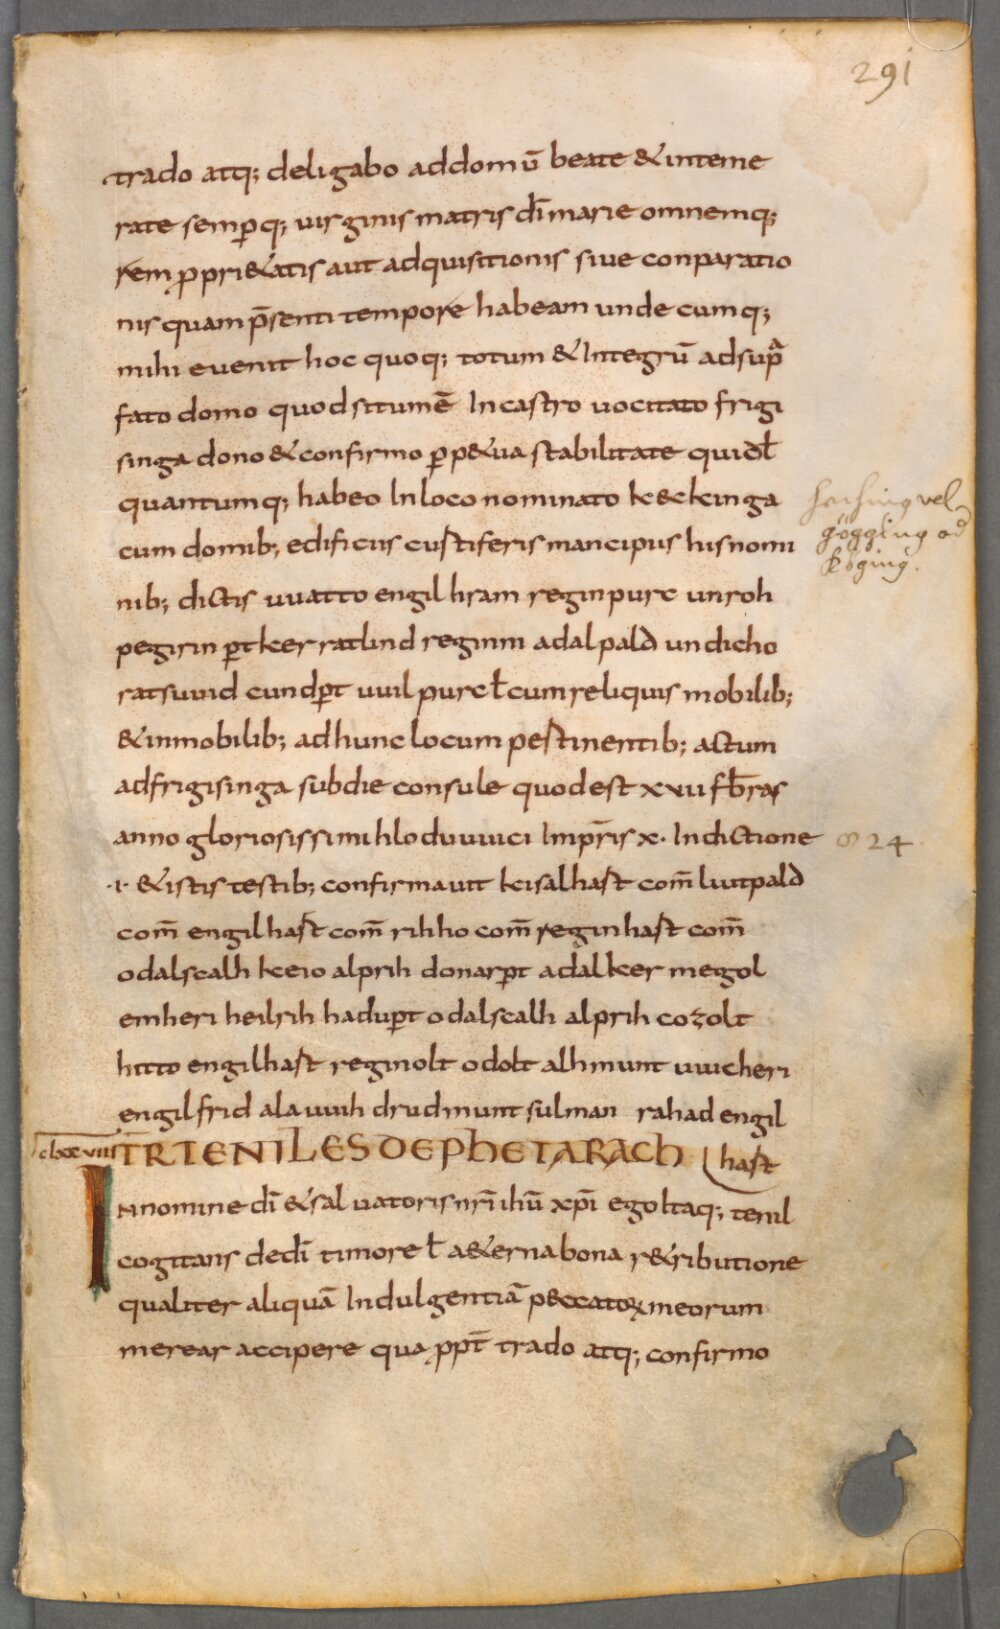 291
trado atq; deligabo addomū beate & inteme
rate semp̱q; uirginis matris dī marie omnemq;
rem p̱pri&atis aut adquisitionis siue conparatio
nis quam p̄senti tempore habeam unde cumq;
mihi euenit hoc quoq; totum & Integrū adsup̃
fato domo quod situmē In castro uocitato frigi
singa dono & confirmo p̱p&ua stabilitate quid ł
quantumq; habeo In loco nominato keckinga
cum domib; edificiis custiferis mancipiis his nomi
nib; dictis uuatto engilhram reginpurc unroh
pegirin p̱tker ratlind reginni adalpald undicho
ratsuuid cundp̱t uuilpurc ł cum reliquis mobilib;
& inmobilib; ad hunc locum pestinentib; actum
ad frigisinga sub die consule quod est xvii fb̄ras
anno gloriosissimi hloduuuici Imp̄ris x. Indictione
.i. & istis testib; confirmauit keisalhast com̄ liutpald
com̄ engilhast com̄ rihho com̄ reginhast com̄
odalscalh keio alprih donarp̱t adalker megol
emheri heilrih hadup̱t odalscalh alprih cozolt
hitto engilhast reginolt odolt alhmunt uuicheri
engilfrid alauuih drudmunt sulman rahad engil
hast
clxxviiii TR TENILES DE PHETARACH
In nomine dī & saluatoris nr̄i ihū xp̄i ego Itaq; tenil
cogitans de dī timore ł a&erna bona r&ributione
qualiter aliquā Indulgentiā peccatoꝝ meorum
merear accipere qua p̱pt̄ trado atq; confirmo
vel
gögging od
köging.
824